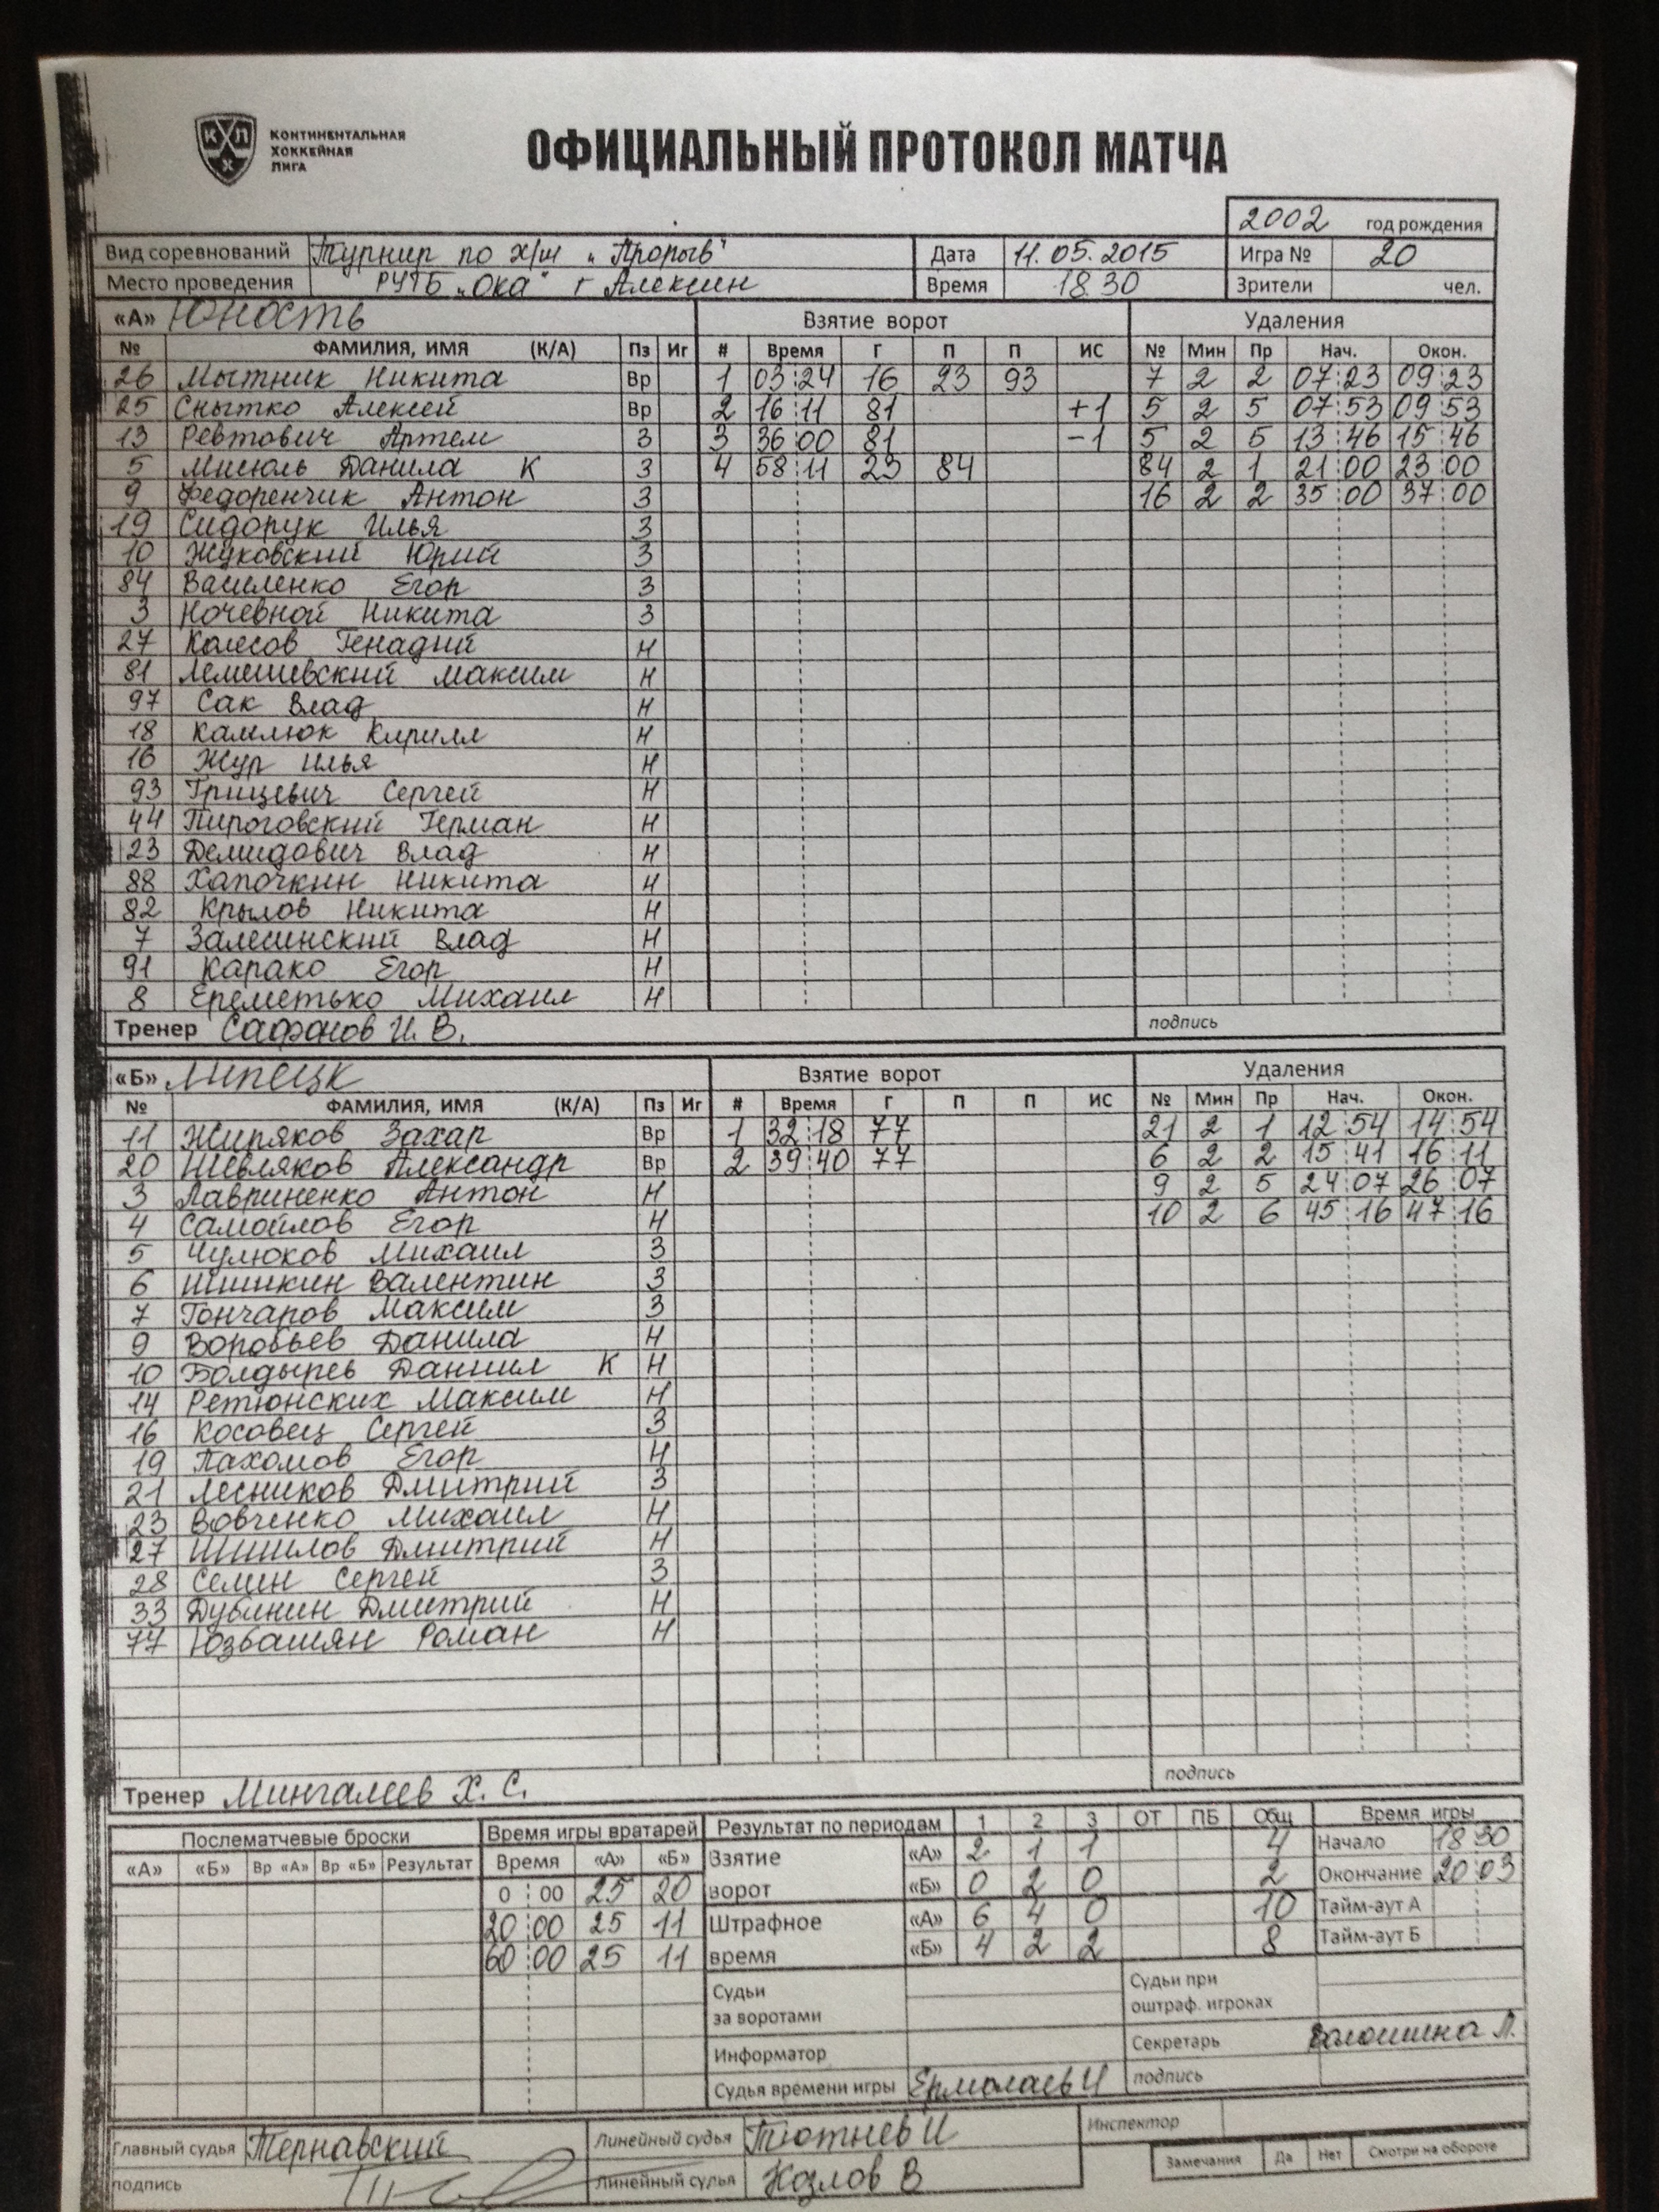 КОНТИНЕНТАЛЬНАЯ
ХОККЕЙНАЯ
ЛИГА
ОФИЦИАЛЬНЫЙ ПРОТОКОЛ МАТЧА
2002 год рождения
Вид соревнований Турнир по х/ш "Прорыв" Дата 11.05.2015 Игра № 20
Место проведения РУТБ "Ока" г Алексин Время 18.30 Зрители чел.
«А» Юность Взятие ворот Удаления
№ ФАМИЛИЯ, ИМЯ (К/А) Пз Иг # Время Г П П ИС № Мин Пр Нач. Окон.
26 Мытник Никита Вр 1 03:24 16 23 93 7 2 2 07:23 09:23
25 Снытко Алексей Вр 2 16:11 81 +1 5 2 5 07:53 09:53
13 Ревтович Артем З 3 36:00 81 -1 5 2 5 13:46 15:46
5 Мисюль Данила К З 4 58:11 23 84 84 2 1 21:00 23:00
9 Федоренчик Антон З 16 2 2 35:00 37:00
19 Сидорук Илья З
10 Жуковский Юрий З
84 Василенко Егор З
3 Ночевной Никита З
27 Колесов Генадий Н
81 Лемешевский Максим Н
97 Сак Влад Н
18 Камлюк Кирилл Н
16 Жур Илья Н
93 Грицевич Сергей Н
44 Пироговский Герман Н
23 Демидович Влад Н
88 Хапочкин Никита Н
82 Крылов Никита Н
7 Залесинский Влад Н
91 Карако Егор Н
8 Ереметько Михаил Н
Тренер Сафонов И. В. подпись
«Б» Липецк Взятие ворот Удаления
№ ФАМИЛИЯ, ИМЯ (К/А) Пз Иг # Время Г П П ИС № Мин Пр Нач. Окон.
11 Жиряков Захар Вр 1 32:18 77 21 2 1 12:54 14:54
20 Шевляков Александр Вр 2 39:40 77 6 2 2 15:41 16:11
3 Лавриненко Антон Н 9 2 5 24:07 26:07
4 Самойлов Егор Н 10 2 6 45:16 47:16
5 Чулюков Михаил З
6 Шишкин Валентин З
7 Гончаров Максим З
9 Воробьев Данила Н
10 Болдырев Даниил К Н
14 Ретюнских Максим Н
16 Косовец Сергей З
19 Пахомов Егор Н
21 Лесников Дмитрий З
23 Вовченко Михаил Н
27 Шишлов Дмитрий Н
28 Семин Сергей З
33 Дубинин Дмитрий Н
77 Юзбашян Роман Н
подпись
Тренер Мингалеев Х. С.
Послематчевые броски Время игры вратарей Результат по периодам 1 2 3 ОТ ПБ Общ Время игры
«А» «Б» Вр «А» Вр «Б» Результат Время «А» «Б» Взятие «А» 2 1 1 4 Начало 18:30
0:00 25 20 ворот «Б» 0 2 0 2 Окончание 20:03
20:00 25 11 Штрафное «А» 6 4 0 10 Тайм-аут А
60:00 25 11 время «Б» 4 2 2 8 Тайм-аут Б
Судьи за воротами Судьи при оштраф. игроках
Информатор Секретарь Волошина Л.
Судья времени игры Ермолаев И подпись
Главный судья Тернавский Линейный судья Тютнев И Инспектор
подпись Линейный судья Козлов В Замечания Да Нет Смотри на обороте